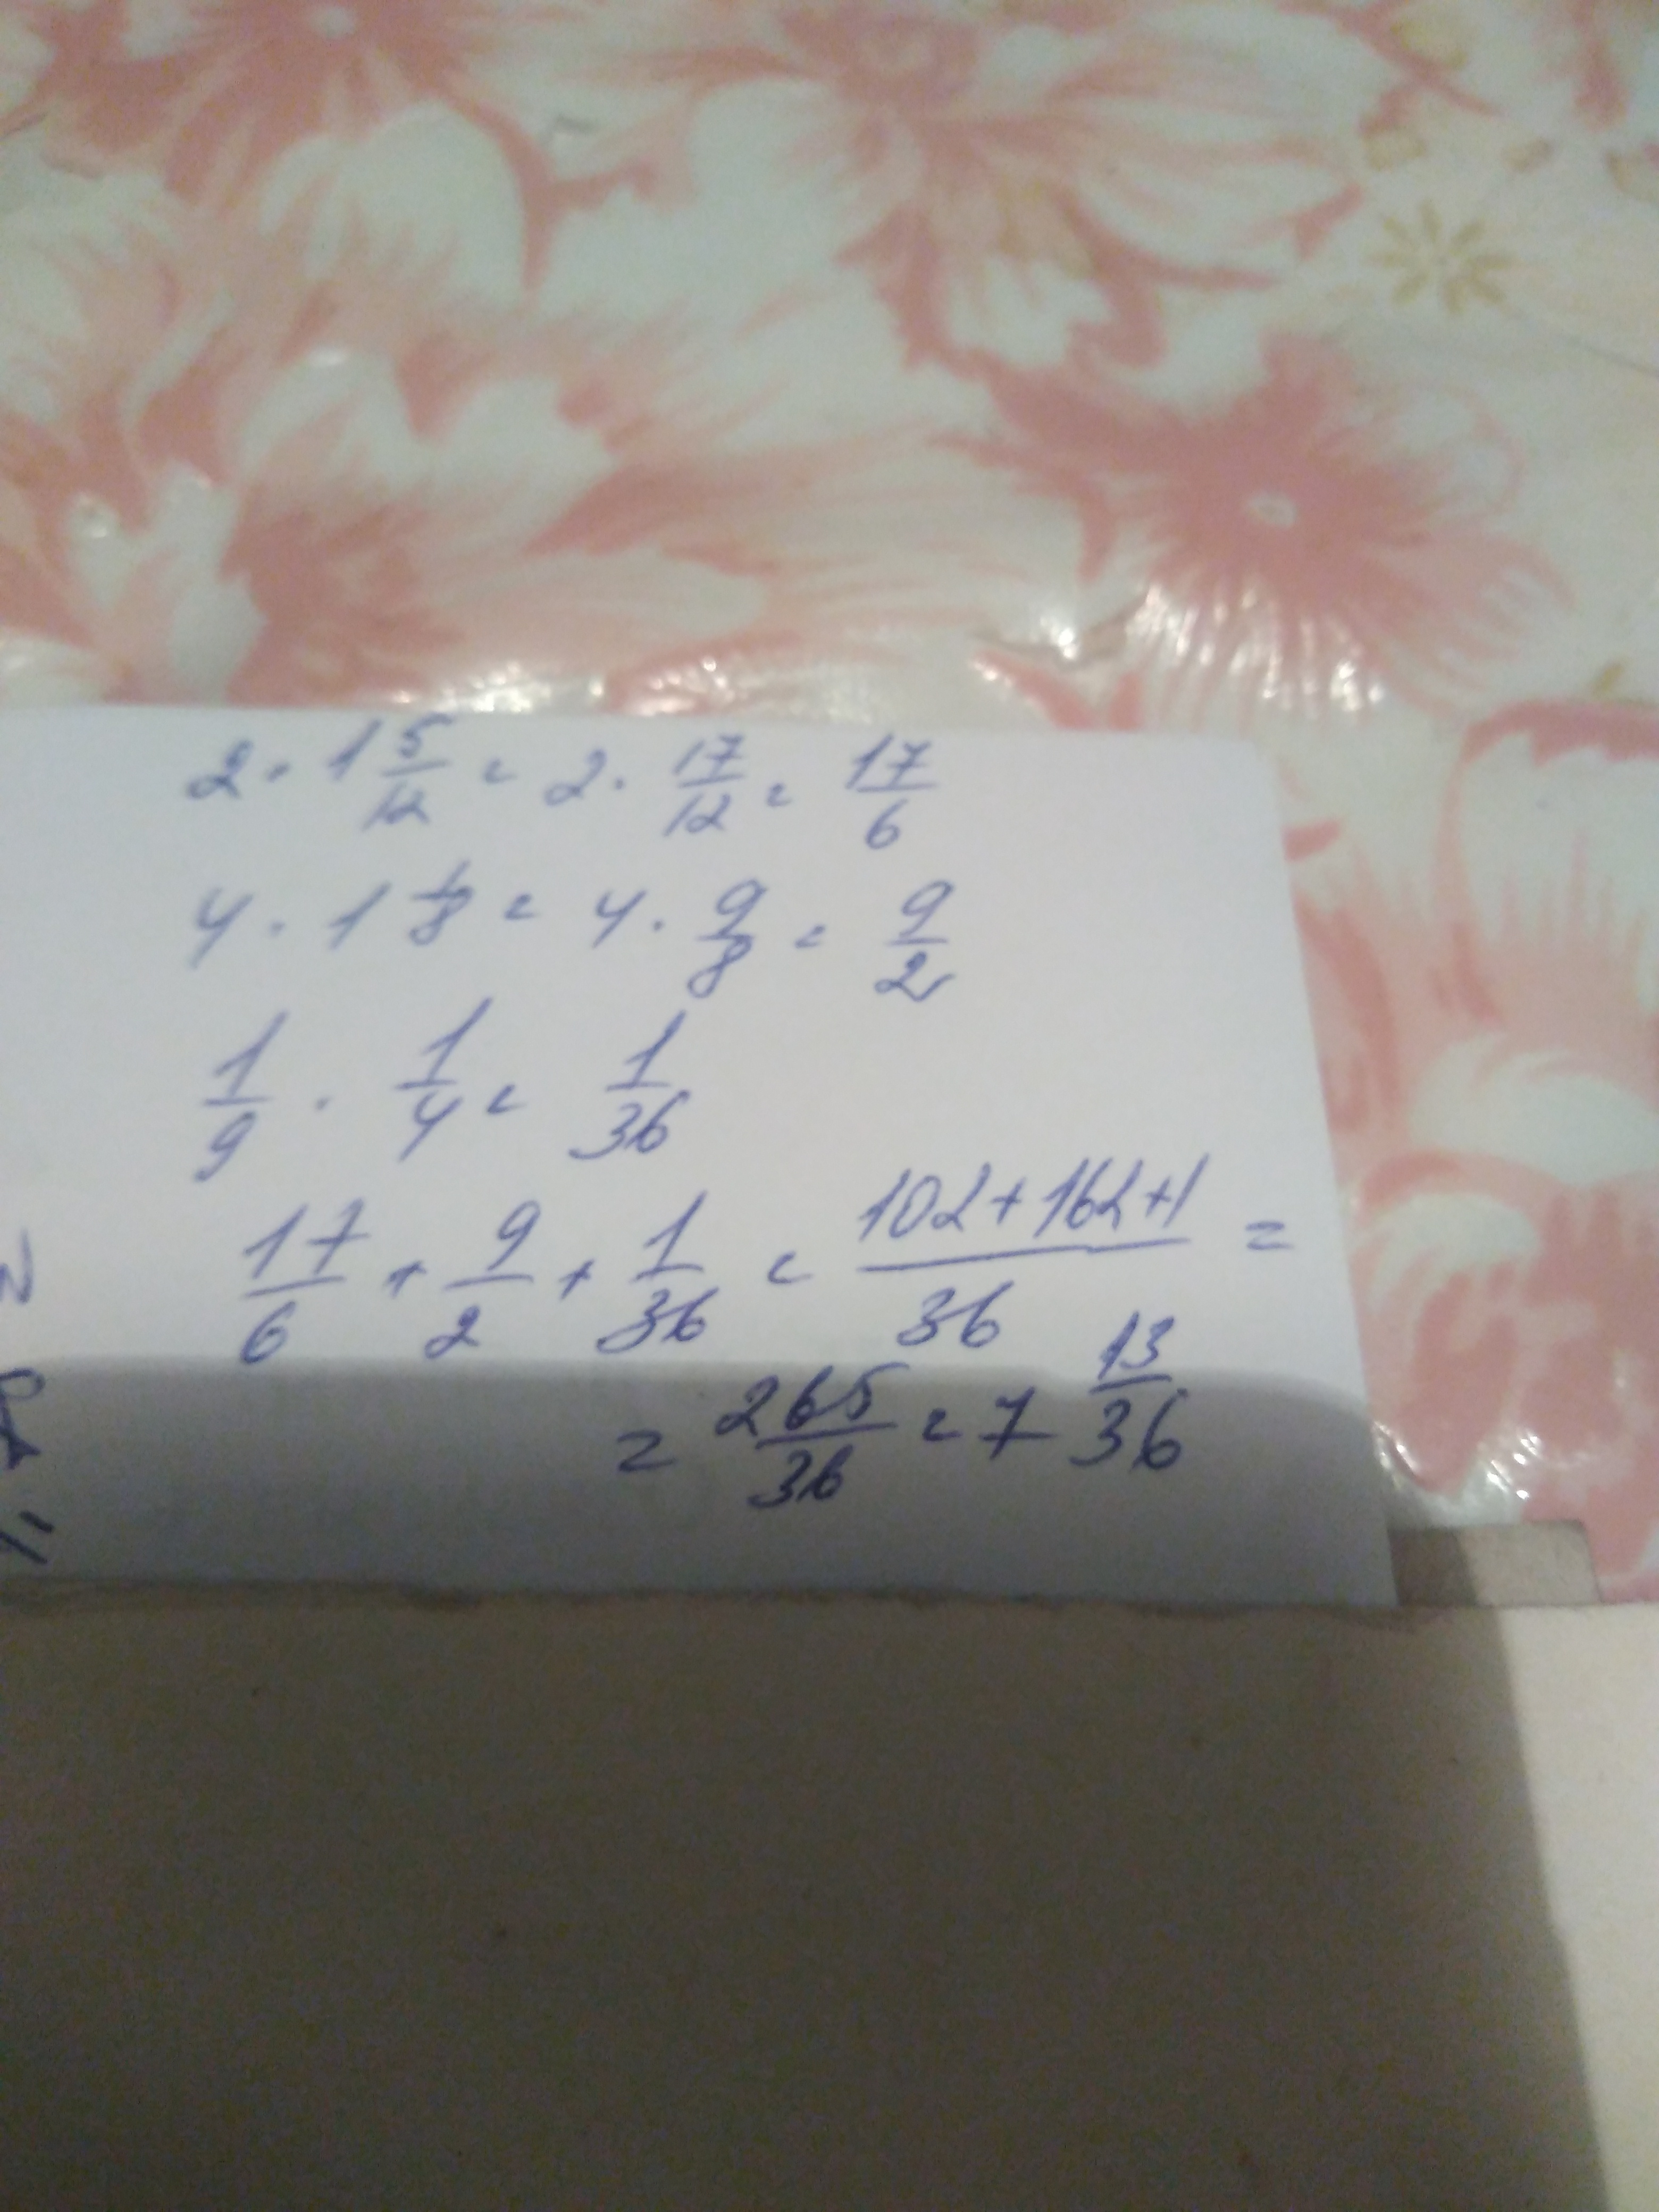 2 · 1 5/12 = 2 · 17/12 = 17/6
4 · 1 1/8 = 4 · 9/8 = 9/2
1/9 · 1/4 = 1/36
17/6 + 9/2 + 1/36 = (102+162+1)/36 =
= 265/36 = 7 13/36